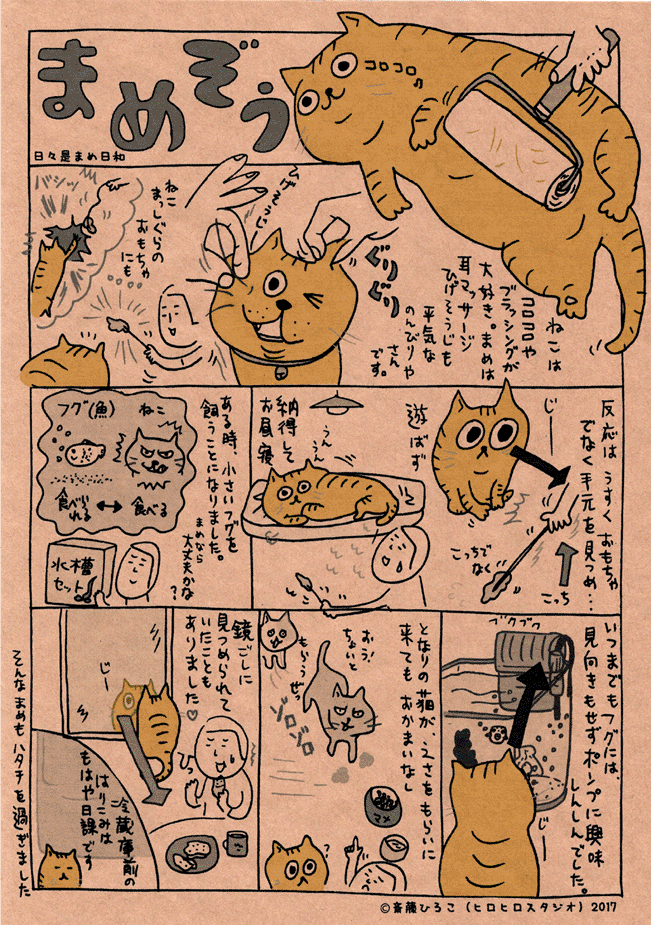 まめぞう
日々是まめ日和
コロコロ♪
ねこは
コロコロや
ブラッシングが
大好き。まめは
耳マッサージ
ひげそうじも
平気な
のんびりや
さん
です。
ぐりぐり
ひげそうじ
ねこ
まっしぐらの
おもちゃ
にも
バシッ
反応は うすく おもちゃ
でなく手元を見つめ…
じー
こっちで
なく
こっち
遊ばず
うん
うん
納得して
お昼寝
ある時、小さいフグを
飼うことになりました。
まめなら
大丈夫かな
?
フグ(魚)
ねこ
食べら
れる
食べる
水槽
セット
いつまでもフグには、
見向きもせずポンプに興味
しんしんでした。
ブクブク
じー
となりの猫が、えさをもらいに
来ても おかまいなし
おう!
ちょいと
もらうぜっ
ゾロゾロ
マメ
?
鏡ごしに
見つめられて
いたことも
ありました♡
じー
冷蔵庫前の
はりこみは
もはや日課です
そんなまめもハタチを過ぎました
©斎藤ひろこ(ヒロヒロスタジオ)2017